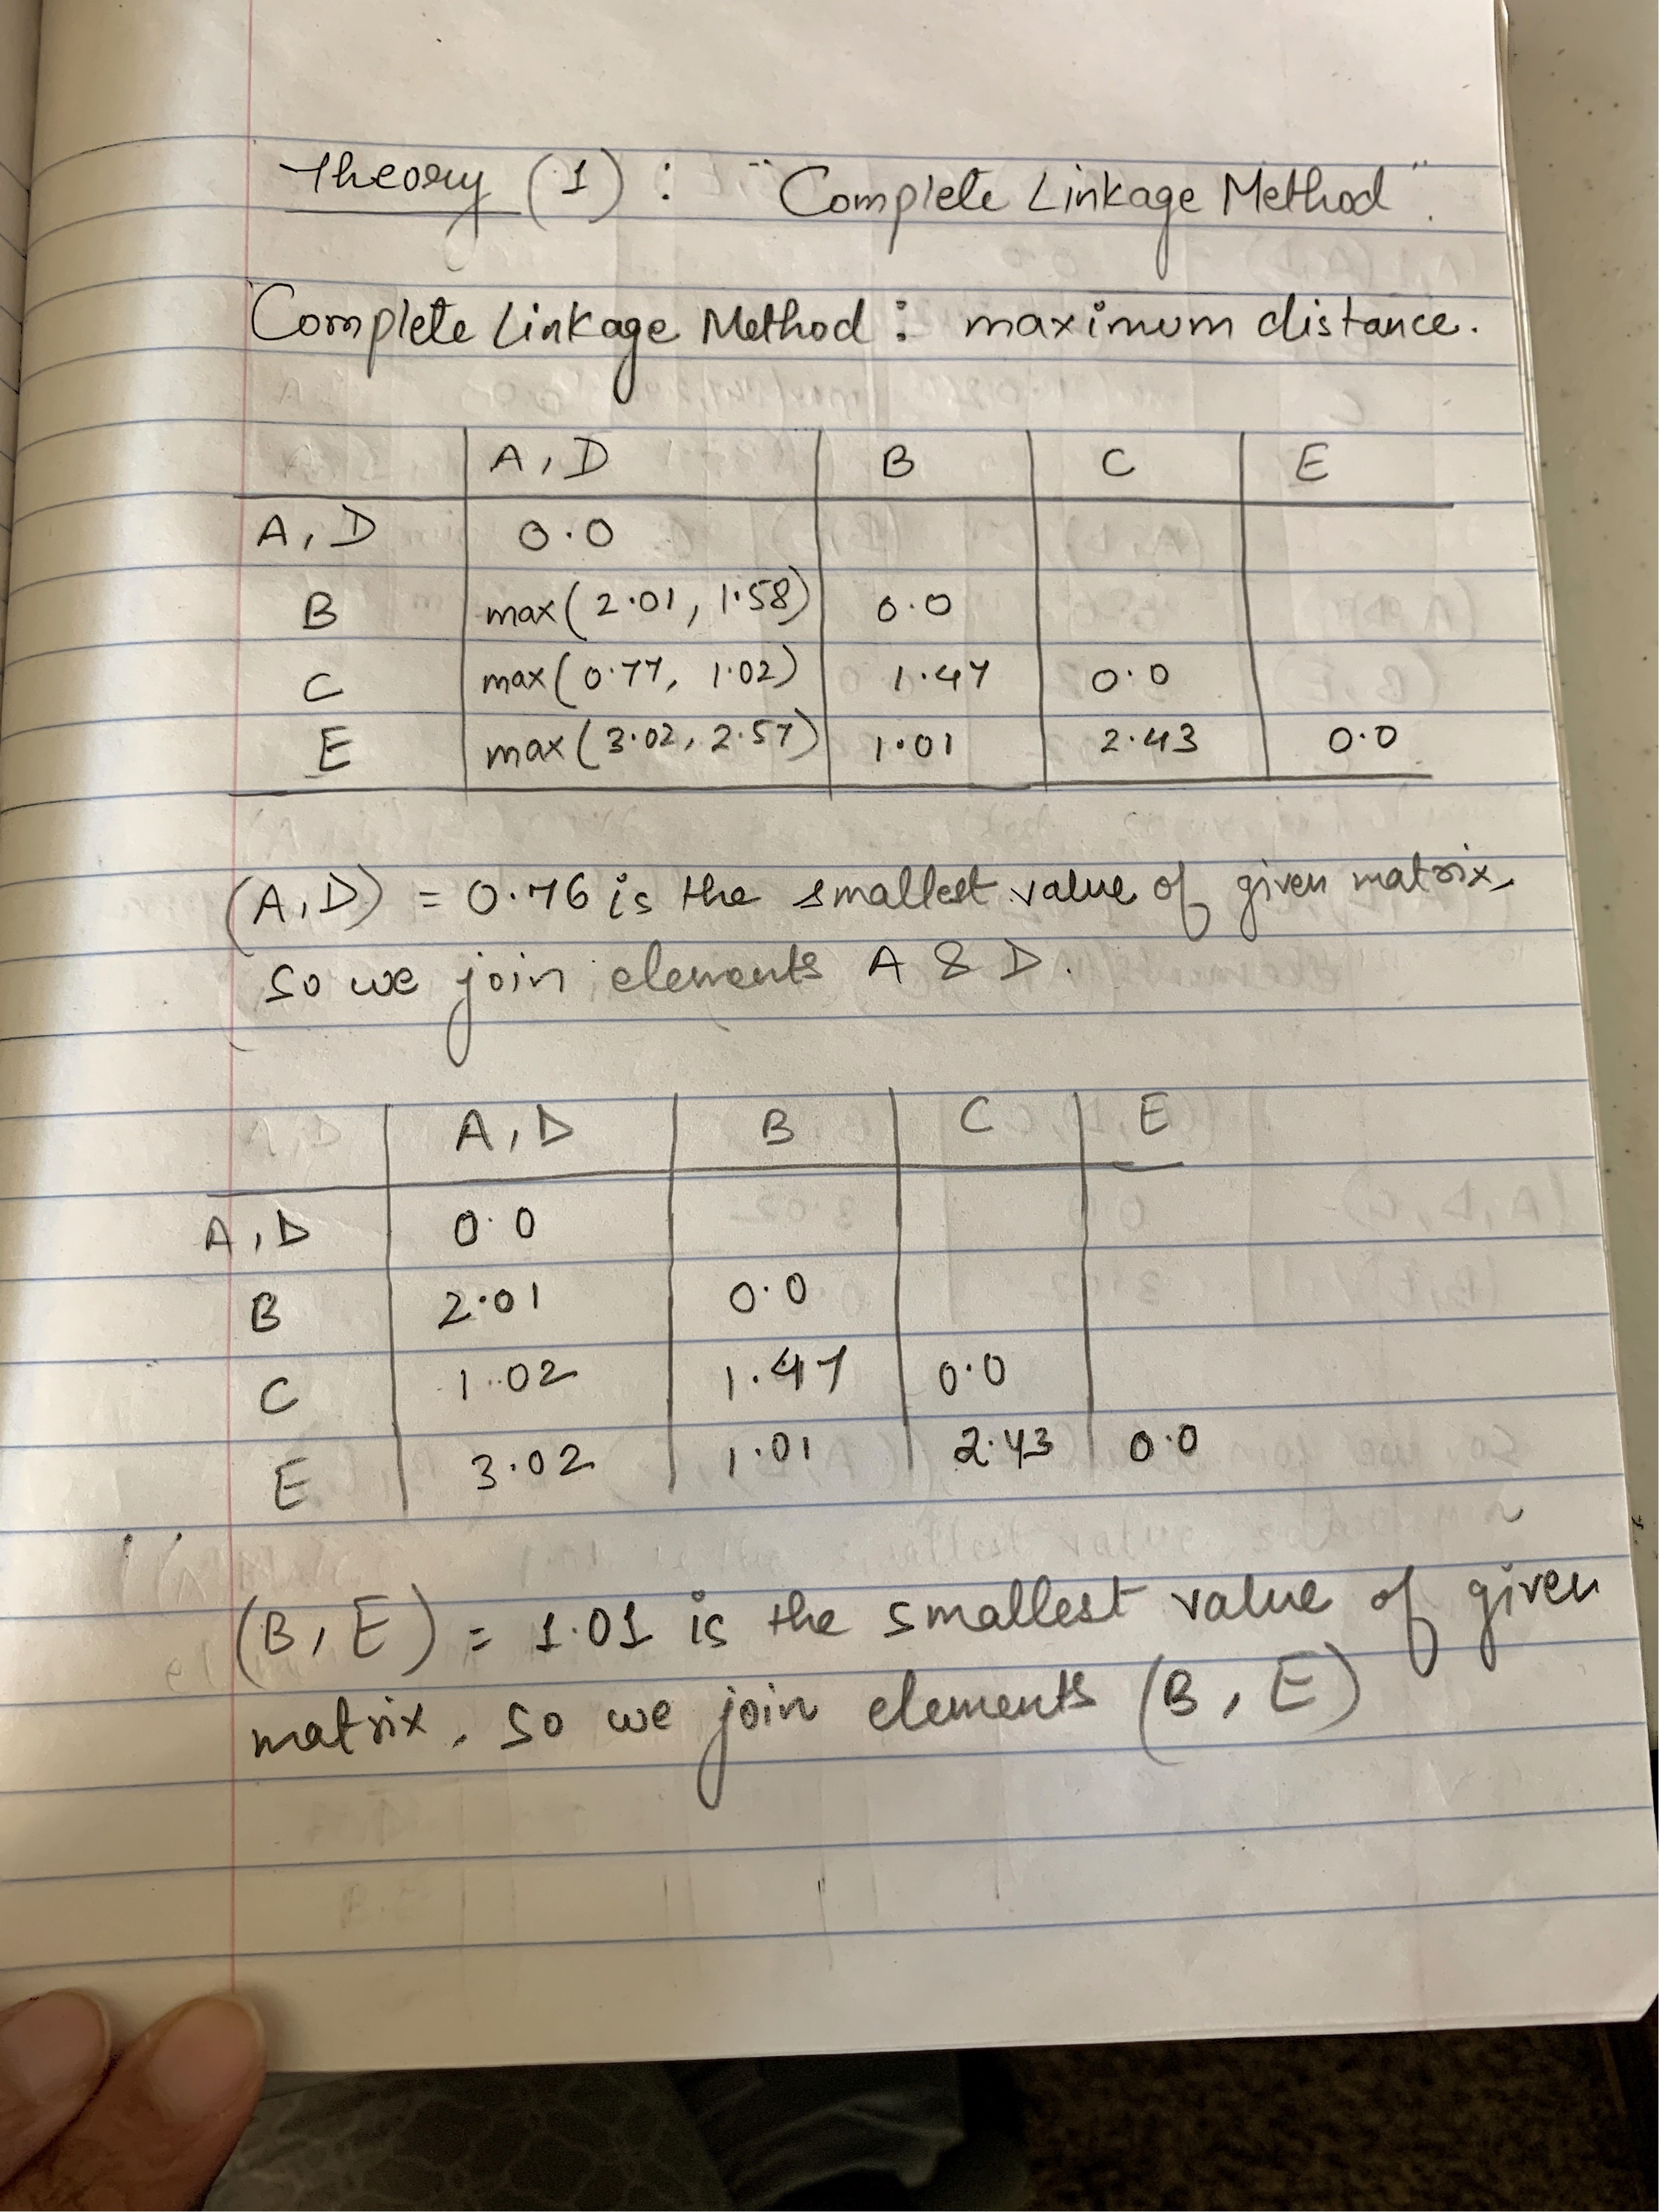 Theory (1) : "Complete Linkage Method".
Complete Linkage Method : maximum distance.
A, D B C E
A, D 0.0
B max(2.01, 1.58) 0.0
C max(0.77, 1.02) 1.47 0.0
E max(3.02, 2.57) 1.01 2.43 0.0
(A, D) = 0.76 is the smallest value of given matrix,
so we join elements A & D.
A, D B C E
A, D 0.0
B 2.01 0.0
C 1.02 1.47 0.0
E 3.02 1.01 2.43 0.0
(B, E) = 1.01 is the smallest value of given
matrix. so we join elements (B, E)